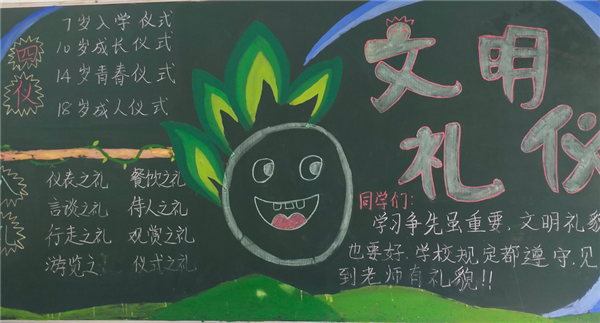 四仪
7岁入学仪式
10岁成长仪式
14岁青春仪式
18岁成人仪式
八礼
仪表之礼 餐饮之礼
言谈之礼 待人之礼
行走之礼 观赏之礼
游览之 仪式之礼
文明
礼仪
同学们:
学习争先虽重要,文明礼貌
也要好.学校规定都遵守,见
到老师有礼貌!!